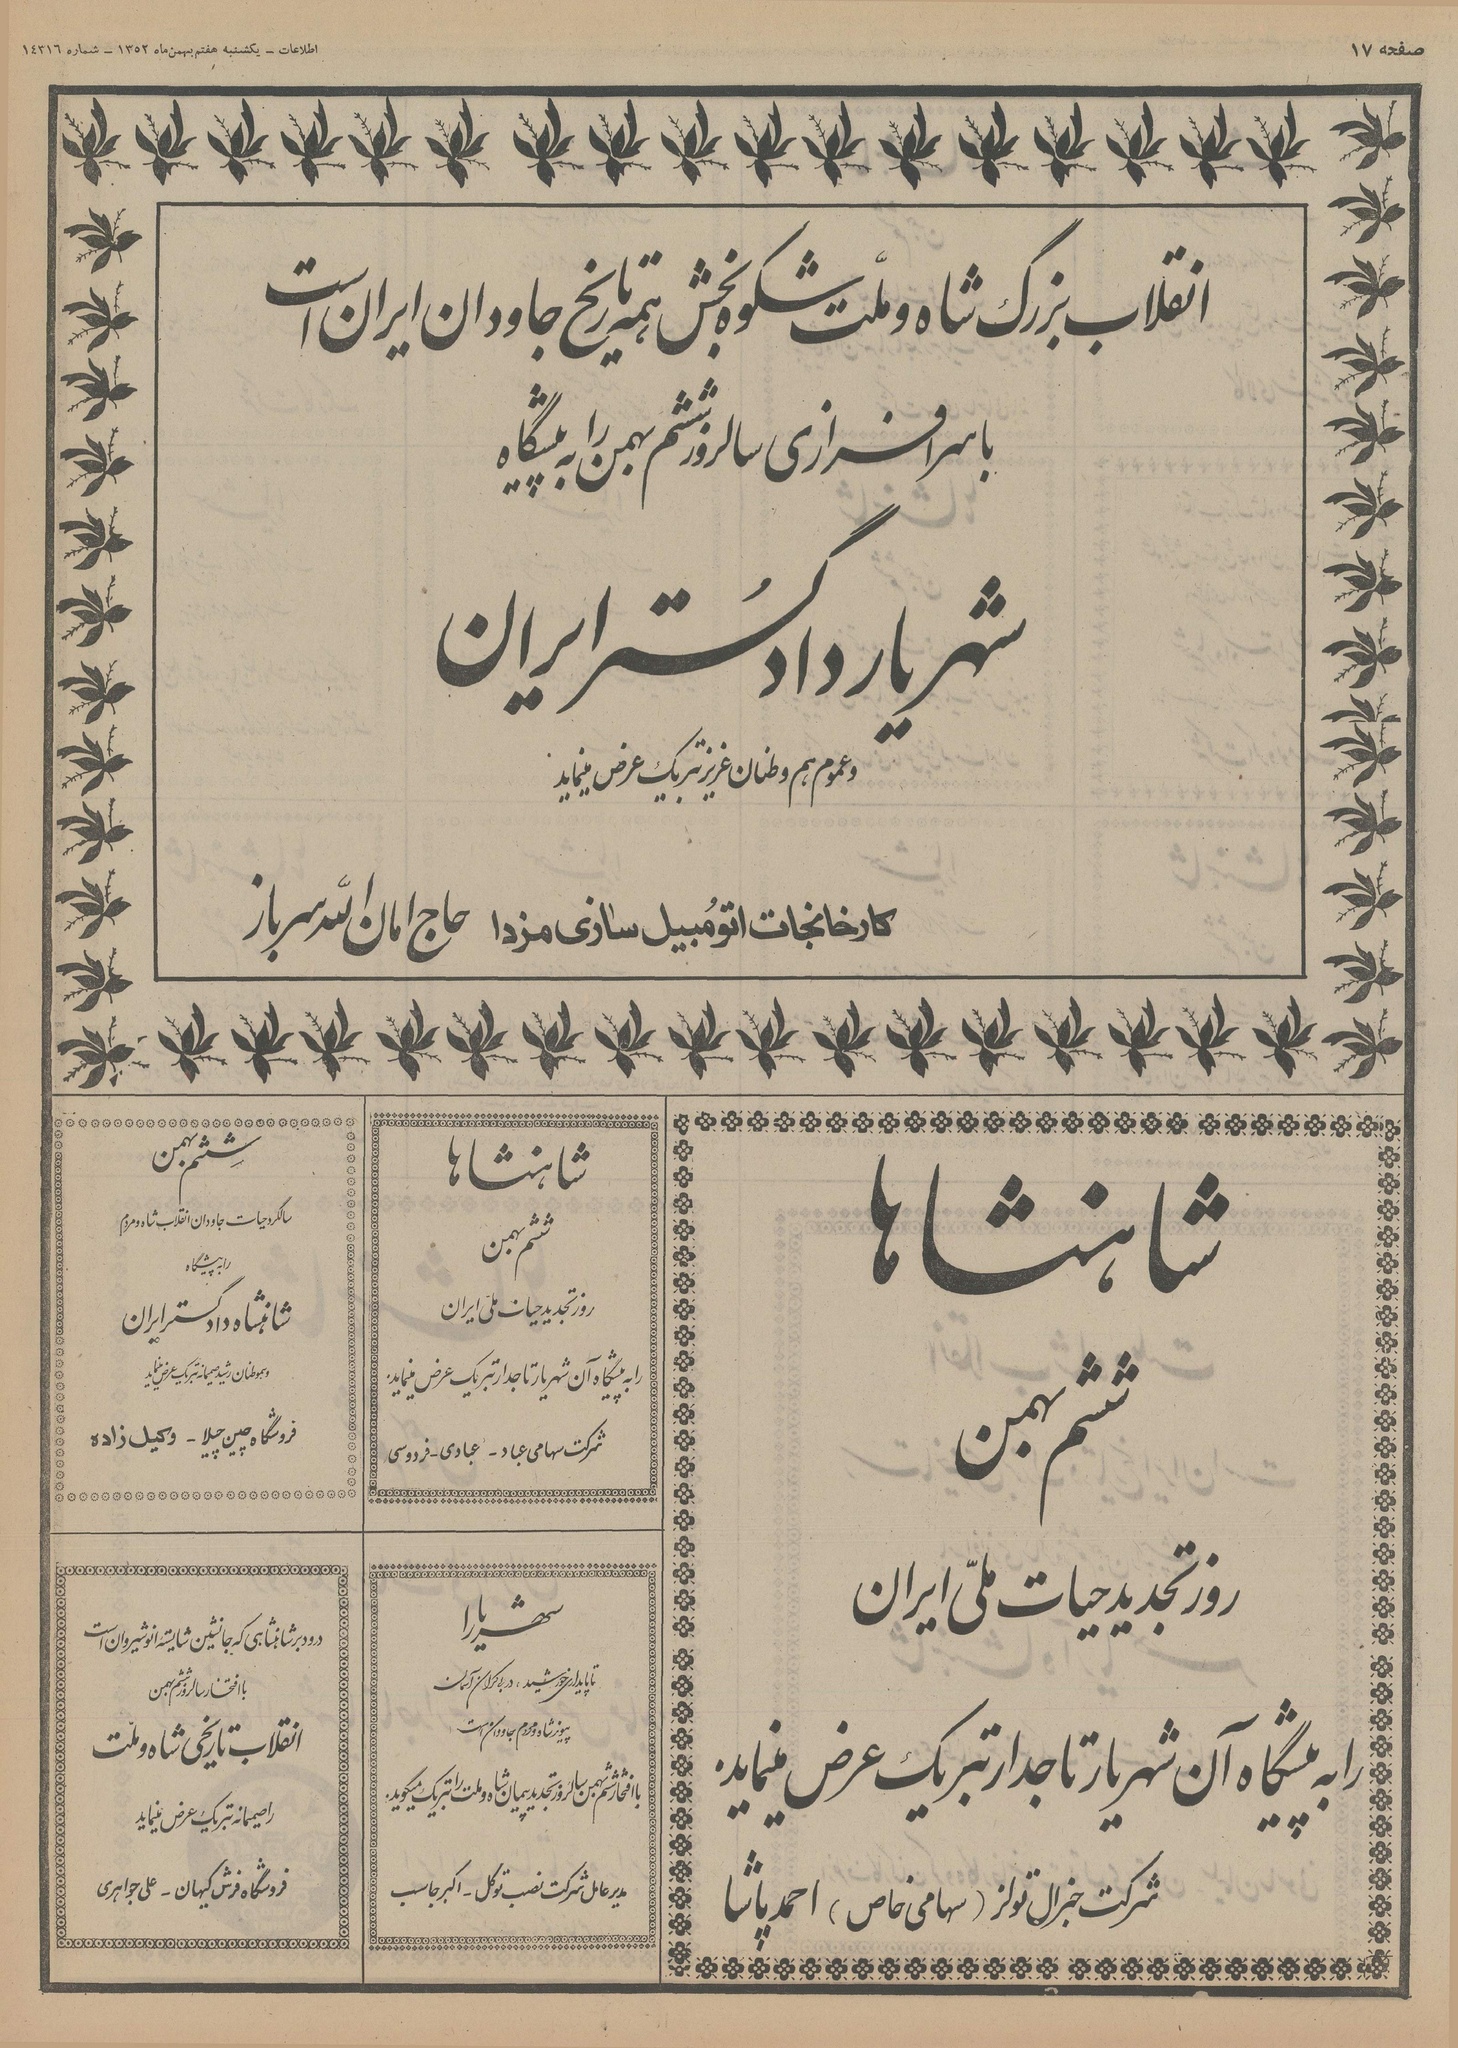 صفحه ۱۷
اطلاعات – یکشنبه هفتم بهمن ماه ۱۳۵۲ – شماره ۱۴۳۱۶
انقلاب بزرگ شاه و ملّت شکوه بخش همه تاریخ جاودان ایران است
با سرافرازی سالروز ششم بهمن را به پیشگاه
شهریار دادگُستر ایران
و عموم هم وطنان عزیز تبریک عرض مینماید
کارخانجات اتومُبیل سازی مزدا حاج امان اللّه سرباز
شاهنشاها
ششم بهمن
روز تجدید حیات ملّی ایران
را به پیشگاه آن شهریار تاجدار تبریک عرض مینماید.
شرکت جنرال تولز ( سهامی خاص ) احمد پاشا
شاهنشاها
ششم بهمن
روز تجدید حیات ملّی ایران
را به پیشگاه آن شهریار تاجدار تبریک عرض مینماید.
شرکت سهامی عباد - عبادی - فردوسی
ششم بهمن
سالگرد حیات جاودان انقلاب شاه و مردم
را به پیشگاه
شاهنشاه دادگستر ایران
و هموطنان رشید صمیمانه تبریک عرض مینماید
فروشگاه چین چیلا - وکیل زاده
شهریارا
تا پایداری خورشید، در بی کران آسمان
پیوند شاه و مردم جاودان است
با افتخار ششم بهمن سالروز تجدید پیمان شاه و ملت را تبریک میگوید.
مدیر عامل شرکت نصب توکل - اکبر جاسب
درود بر شاهنشاهی که جانشین شایسته انوشیروان است
با افتخار سالروز ششم بهمن
انقلاب تاریخی شاه و ملّت
را صمیمانه تبریک عرض مینماید
فروشگاه فرش کیهان - علی جواهری